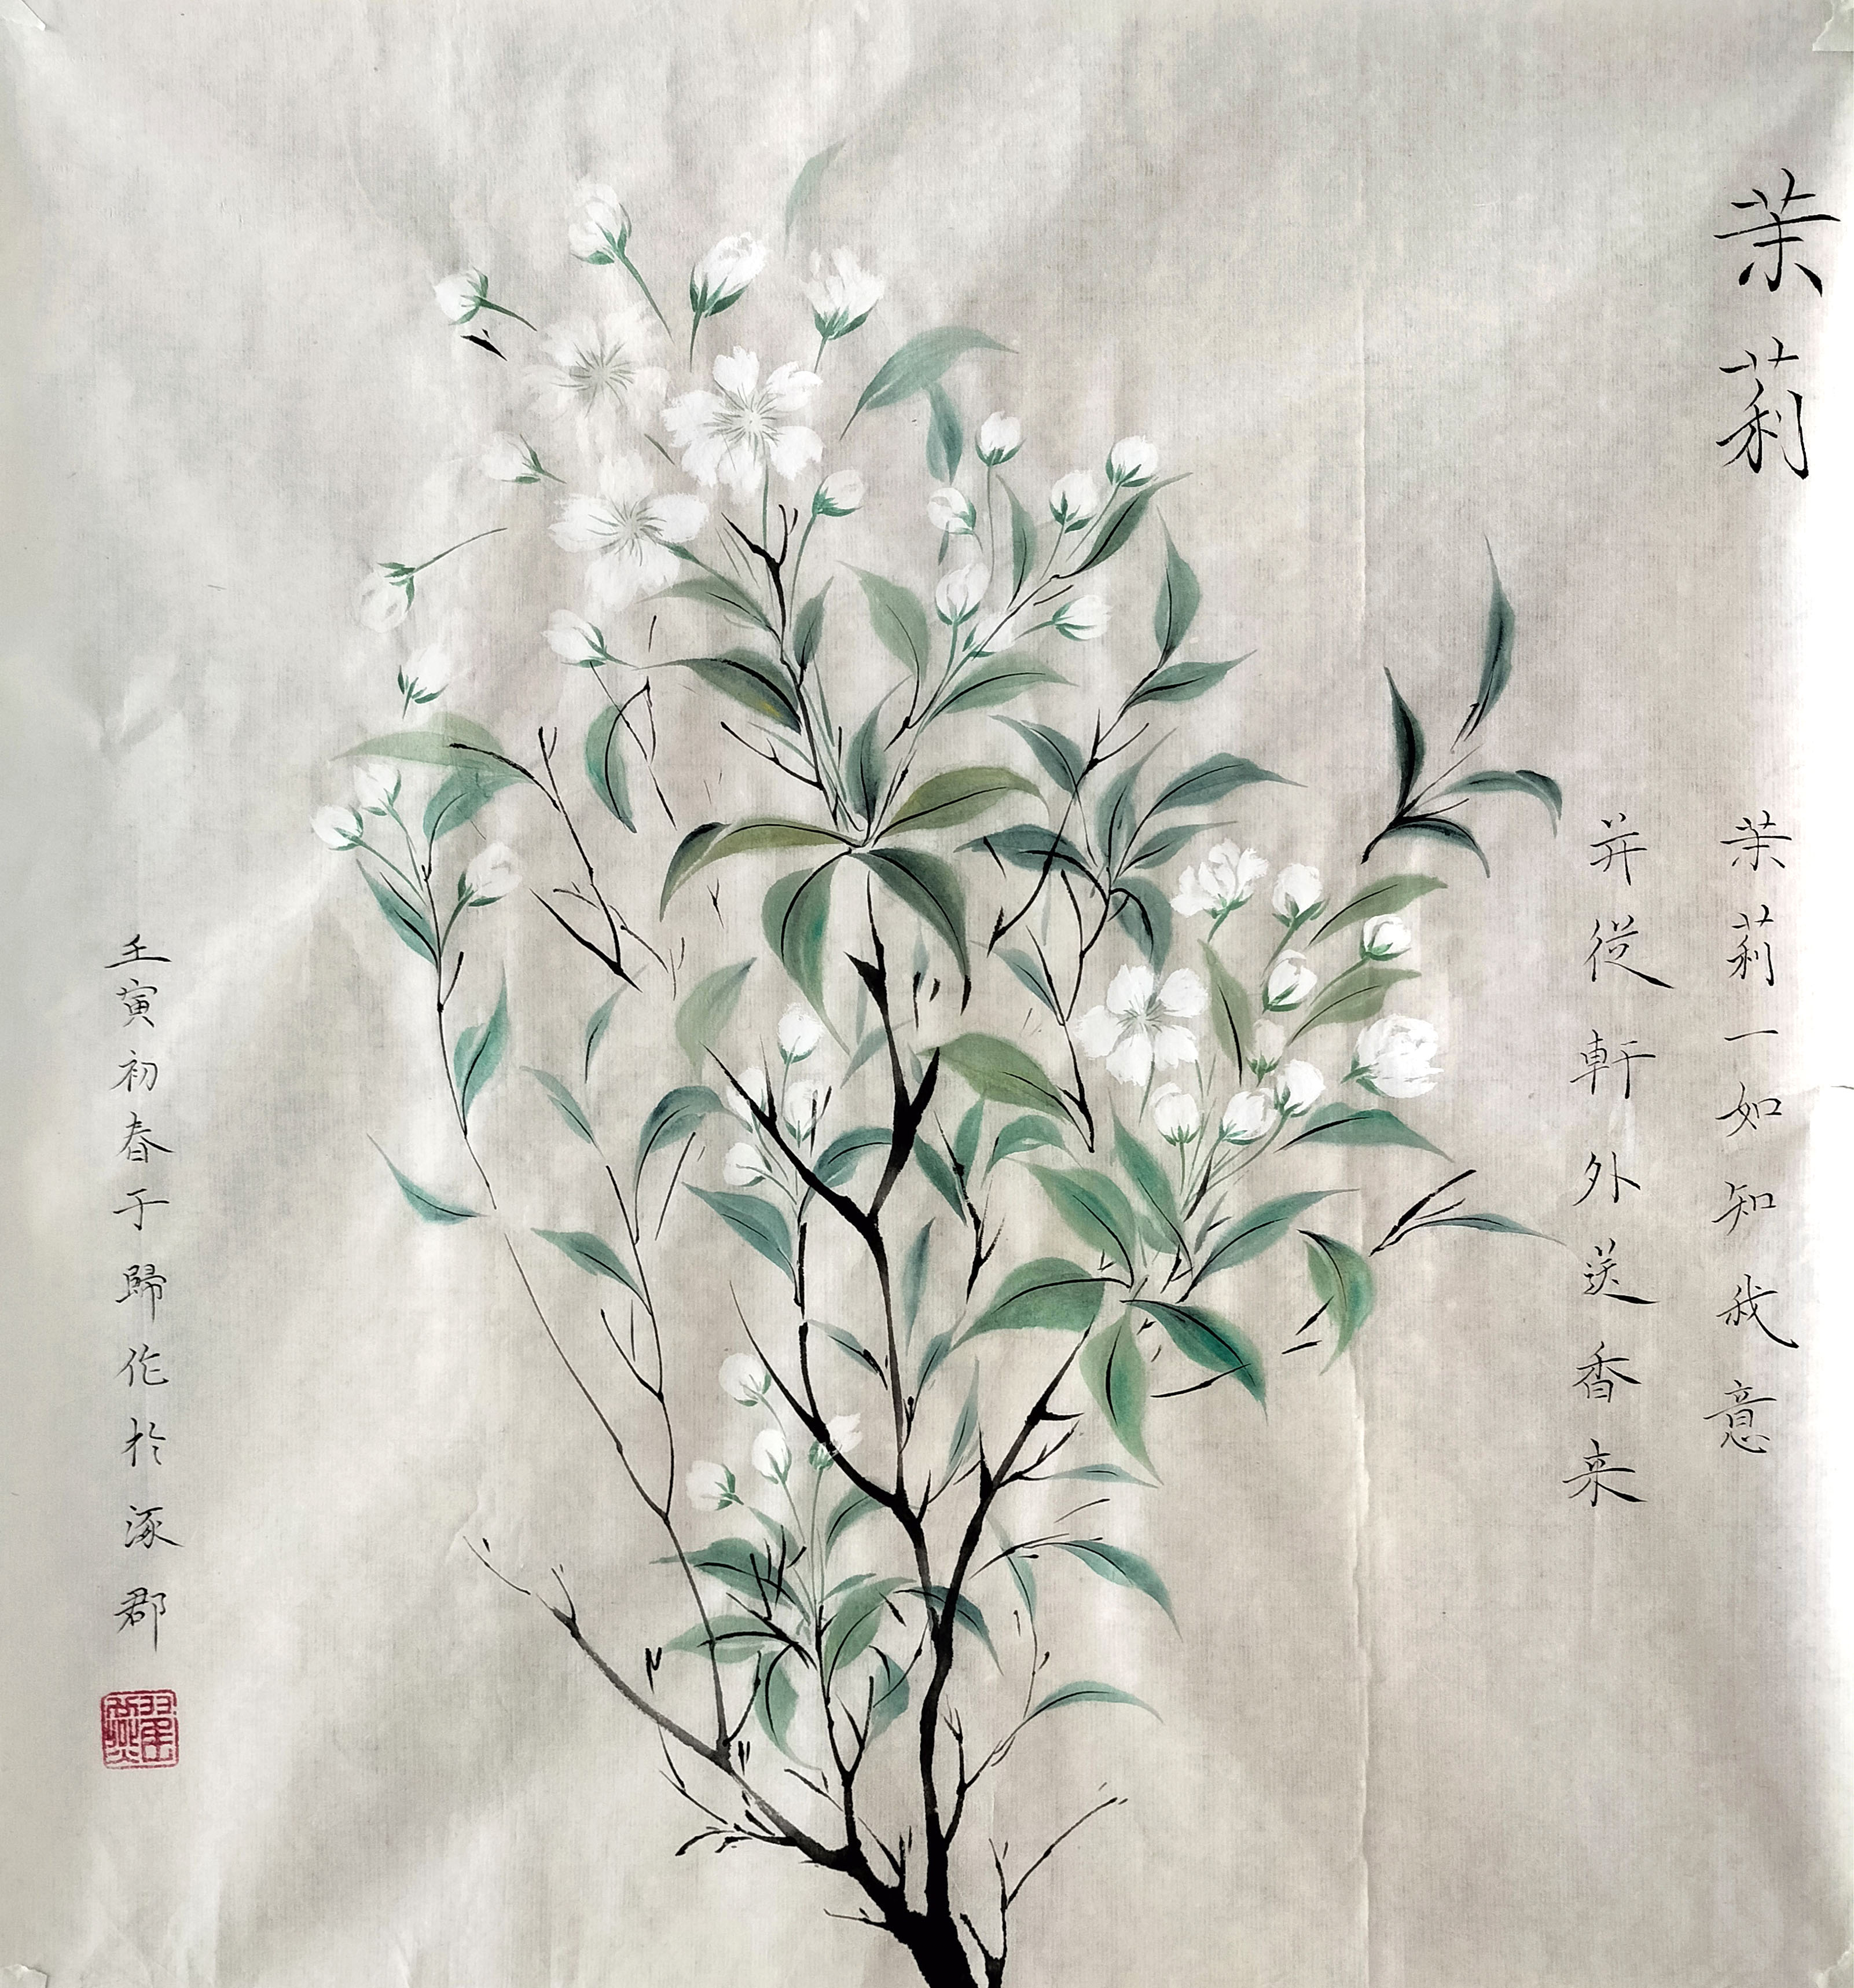 茉莉
茉莉一如知我意
并從軒外送香来
壬寅初春于歸作於涿郡